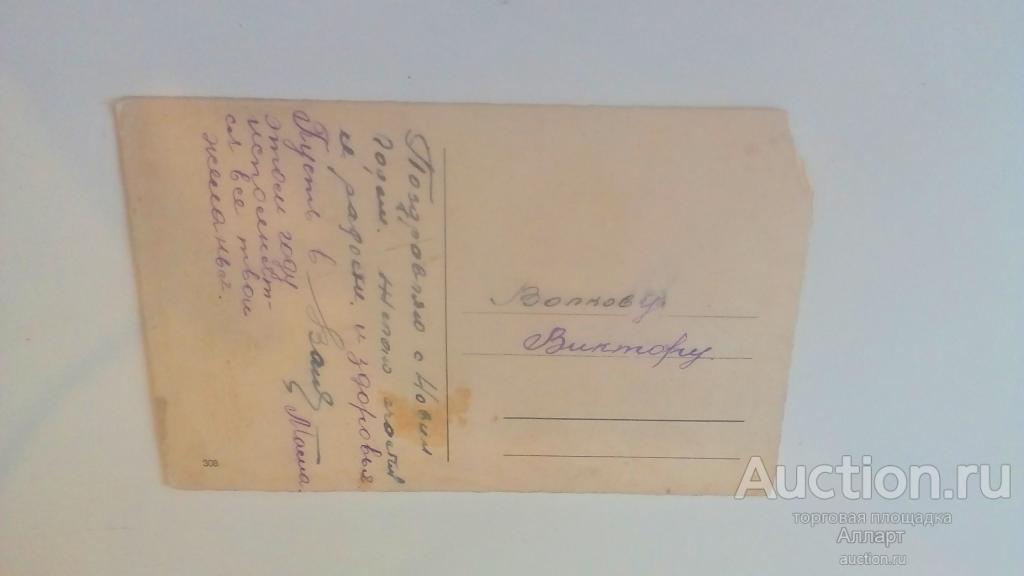 Поздравляю с Новым
годом. Желаю счастья
и радости и здоровья.
Пусть в
этом году
исполнят
ся все твои
желанья.
Ваня
Маша.
Волкову
Виктору
308
Auction.ru
торговая площадка
Алларт
auction.ru